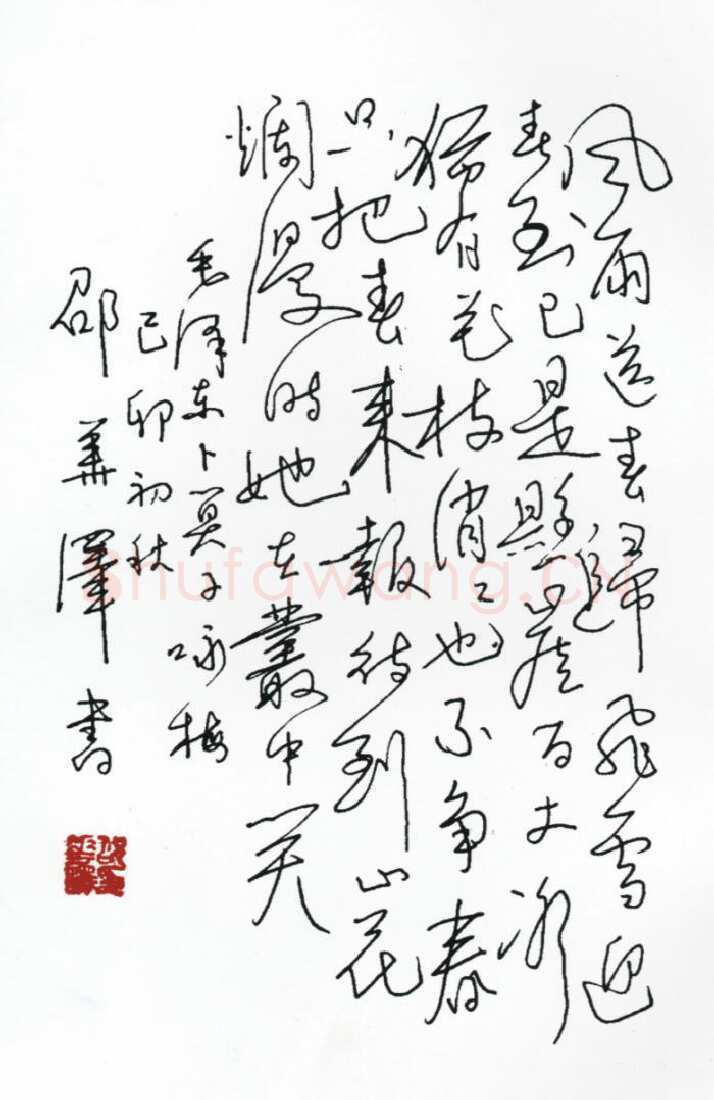 风雨送春歸飛雪迎
春到已是懸崖百丈冰
猶有花枝俏〻也不争春
只把春来報待到山花
爛漫时她在叢中笑
毛泽东卜算子咏梅
己卯初秋
邵華澤書
Shufawang.CN